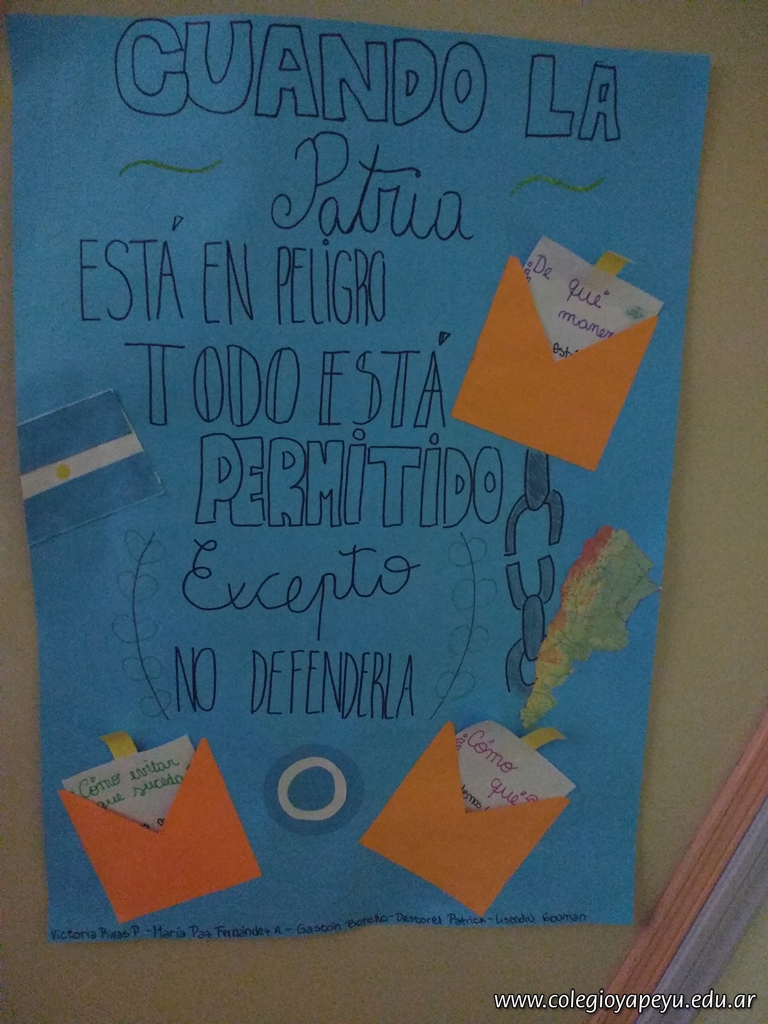 CUANDO LA
Patria
ESTÁ EN PELIGRO
TODO ESTÁ
PERMITIDO
Excepto
NO DEFENDERLA
¿De qué
maner
est
¿Cómo evitar
que suceda
a
¿Cómo
qué
Victoria Rivas P. - María Paz Fernández A. - Gastón - Patrick -
www.colegioyapeyu.edu.ar